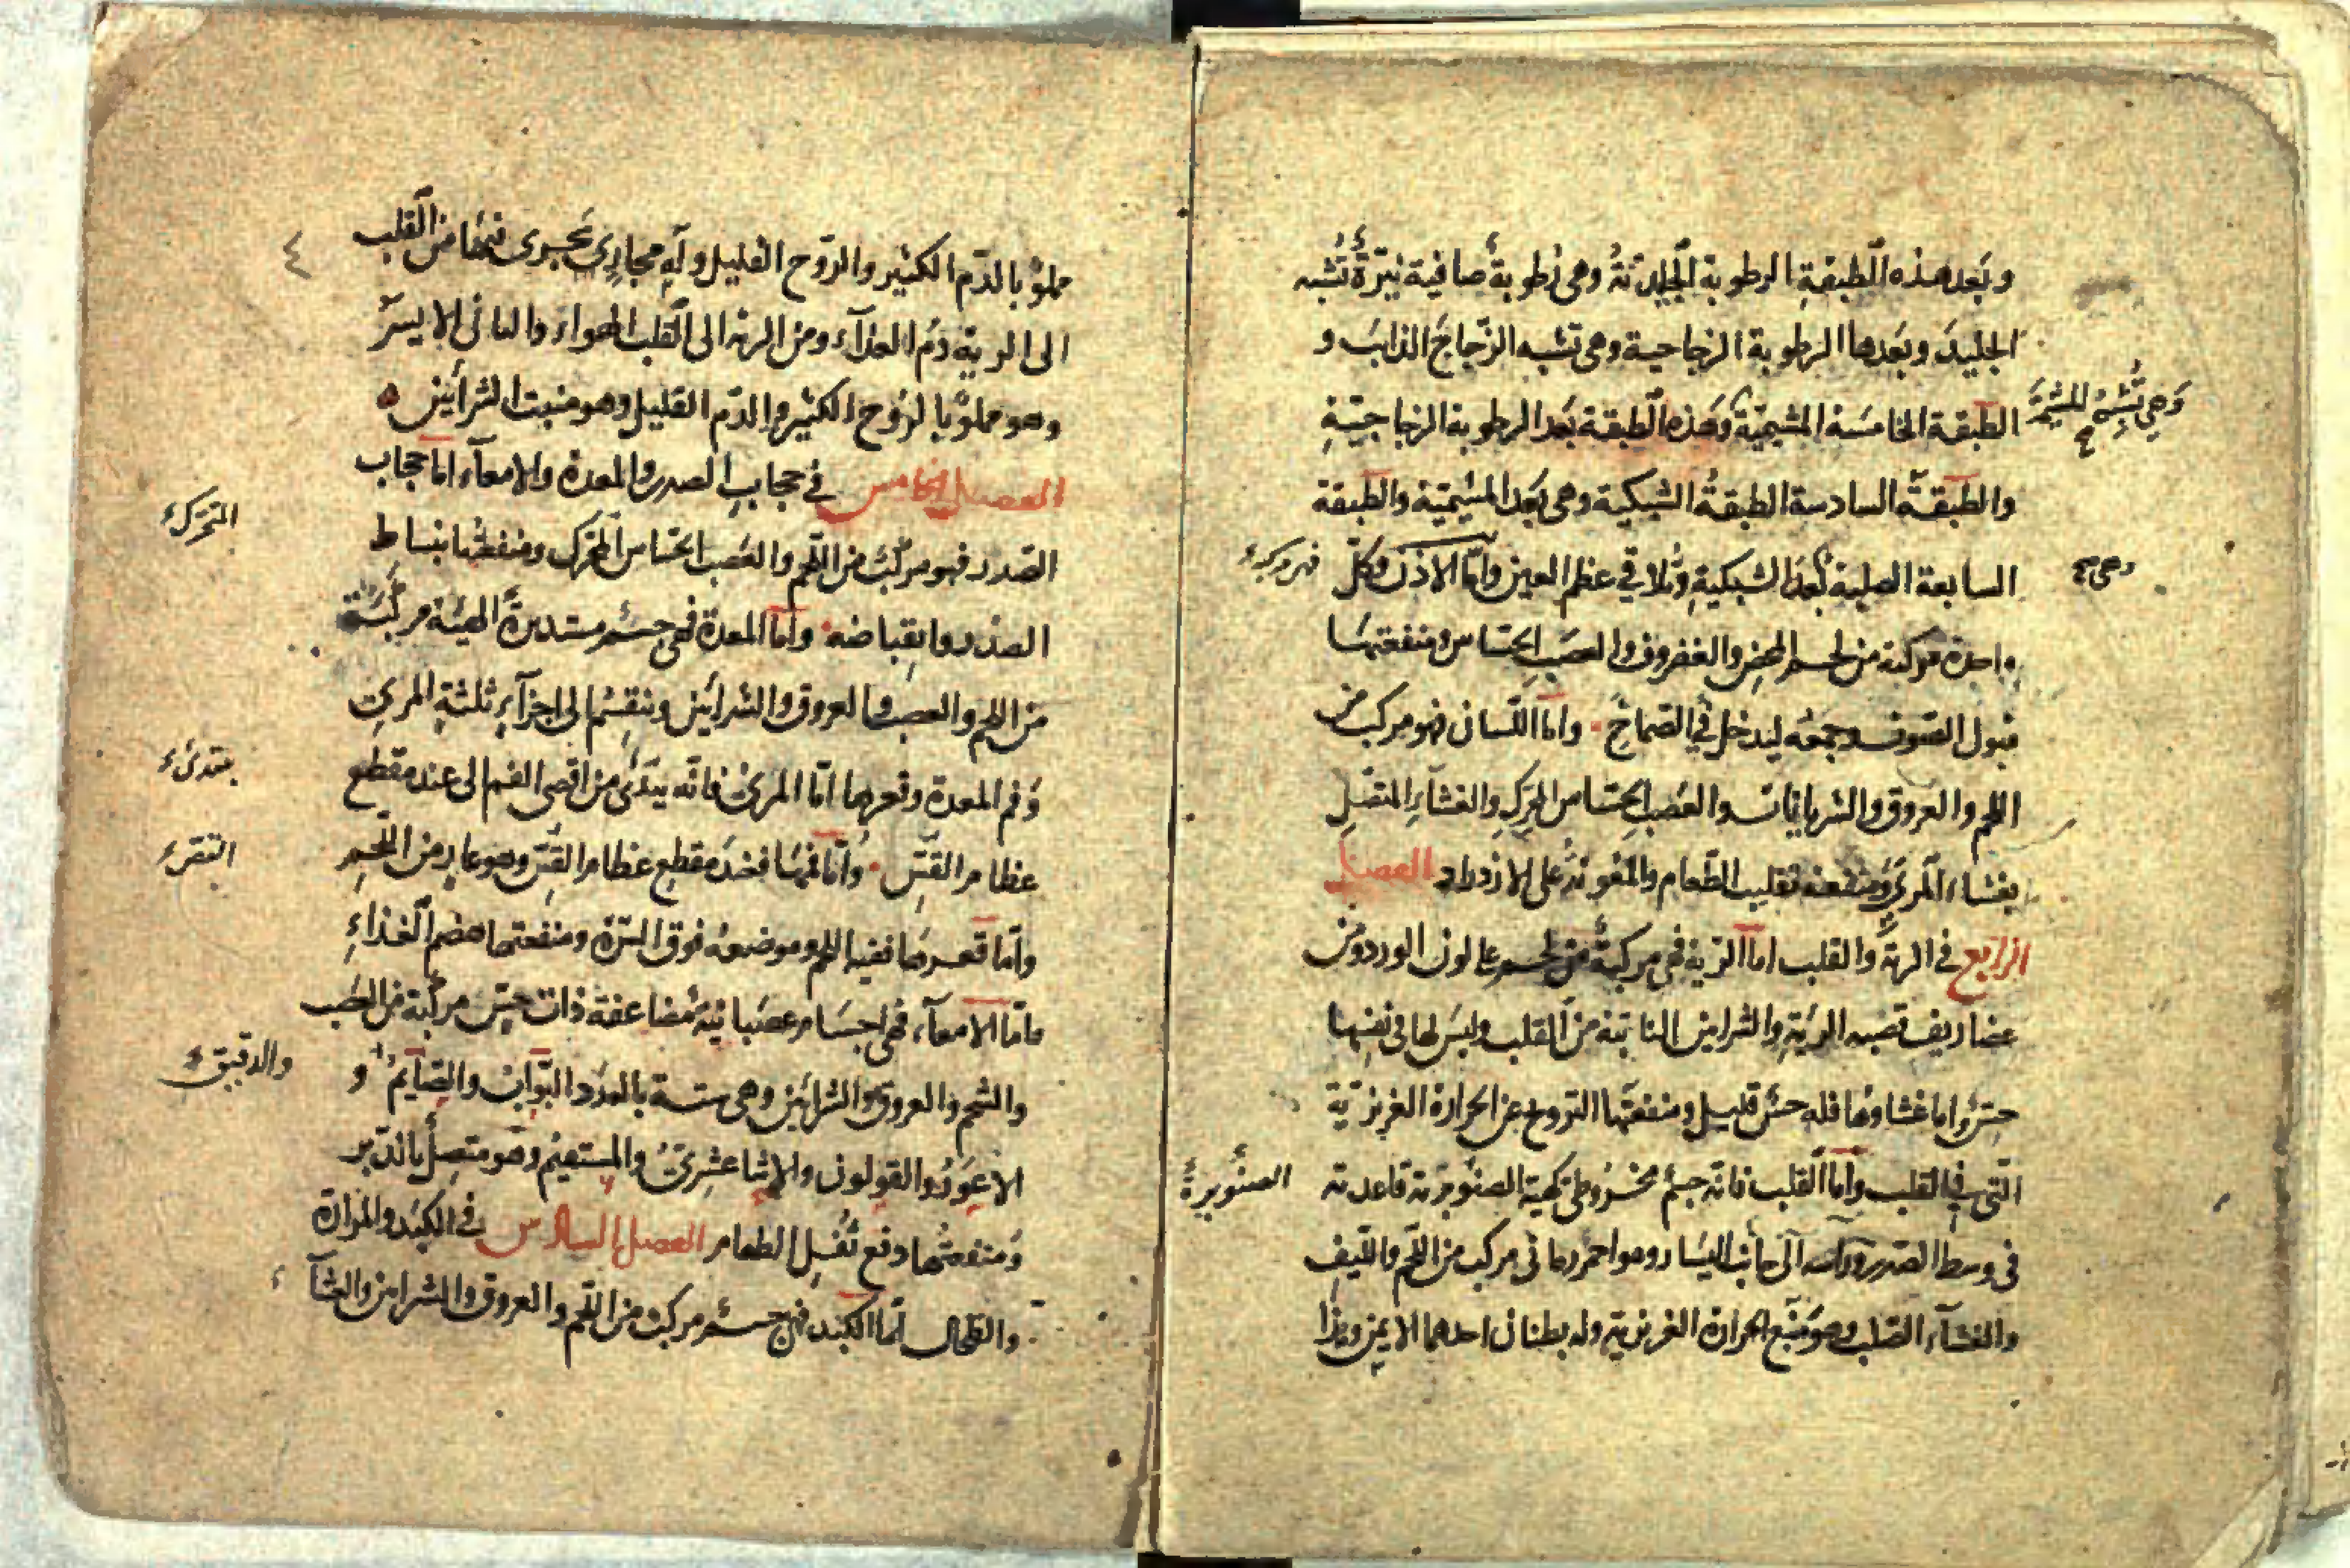 وبعد هذه الطبقة الرطوبة الجليدية وهي رطوبة صافية نيرة تشبه
الجليد وبعدها الرطوبة الزجاجية وهي تشبه الزجاج الذايب و
الطبقة الخامسة المشيمية وهذه الطبقة بعد الرطوبة الزجاجية
وهي تشبه المشيمة
والطبقة السادسة الطبقة الشبكية وهي بعد المشيمية والطبقة
السابعة الصلبة بعد الشبكية وتلاقي عظم العين واما الاذن فكل
وهي
فهي مركبة
واحدة مركبة من لحم المحض والغضروف والعصب الحساس ومنفعتها
قبول الصوت وجمعه ليدخل في الصماخ واما اللسان فهو مركب من
اللحم والعروق والشريانات والعصب الحساس المحرك والغشاء المتصل
بغشاء المرئ ومنفعته تقليب الطعام والمعونة على الازدراد الفصل
الرابع في الرية والقلب اما الرية فهي مركبة من لحم على لون الورد ومن
غضاريف قصبة الرية والشراين النابتة من القلب وليس لها في نفسها
حس واما غشاوها فله حس قليل ومنفعتها الترويح عن الحرارة الغريزية
التي في القلب واما القلب فانه جسم مخروطي كهيئة الصنوبرية قاعدته
الصنوبرة
في وسط الصدر ورأسه الى جانب اليسار وهو احمر رماني مركب من اللحم والليف
والغشاء الصلب وهو منبع الحرارة الغريزية وله بطنان احدهما الايمن وهذا
٤
مملو بالدم الكثير والروح القليل وله مجاري تجرى فيها من القلب
الى الرية دم الغذاء ومن الرية الى القلب الهواء والثانى الايسر
وهو مملو بالروح الكثير والدم القليل وهو منبت الشراين
الفصل الخامس في حجاب الصدر والمعدة والامعاء اما حجاب
الصدر فهو مركب من اللحم والعصب الحساس المحرك ومنفعتها انبساط
المتحرك
الصدر وانقباضه واما المعدة فهي جسم مستديرة الهيئة مركبة
من اللحم والعصب والعروق والشراين وتنقسم الى اجزاء ثلثة المرئ
وفم المعدة وقعرها اما المرئ فانه يبتدئ من اقصى الفم الى عند مقطع
مبتدئ
عظام القس واما فمها فعند مقطع عظام القس وهو عار من اللحم
واما قعرها ففيه اللحم وموضعه فوق السرة ومنفعتها هضم الغذاء
فاما الامعاء فهي اجسام عصبانية مضاعفة ذات حس مركبة من العصب
والشحم والعروق والشراين وهي ستة بالعدد البواب والصايم و
والدقيق
الاعور والقولون والاثنا عشري والمستقيم وهو متصل بالدبر
ومنفعتها دفع ثفل الطعام الفصل السادس في الكبد والمرارة
والطحال اما الكبد فهي جسم مركب من اللحم والعروق والشراين والغشاء